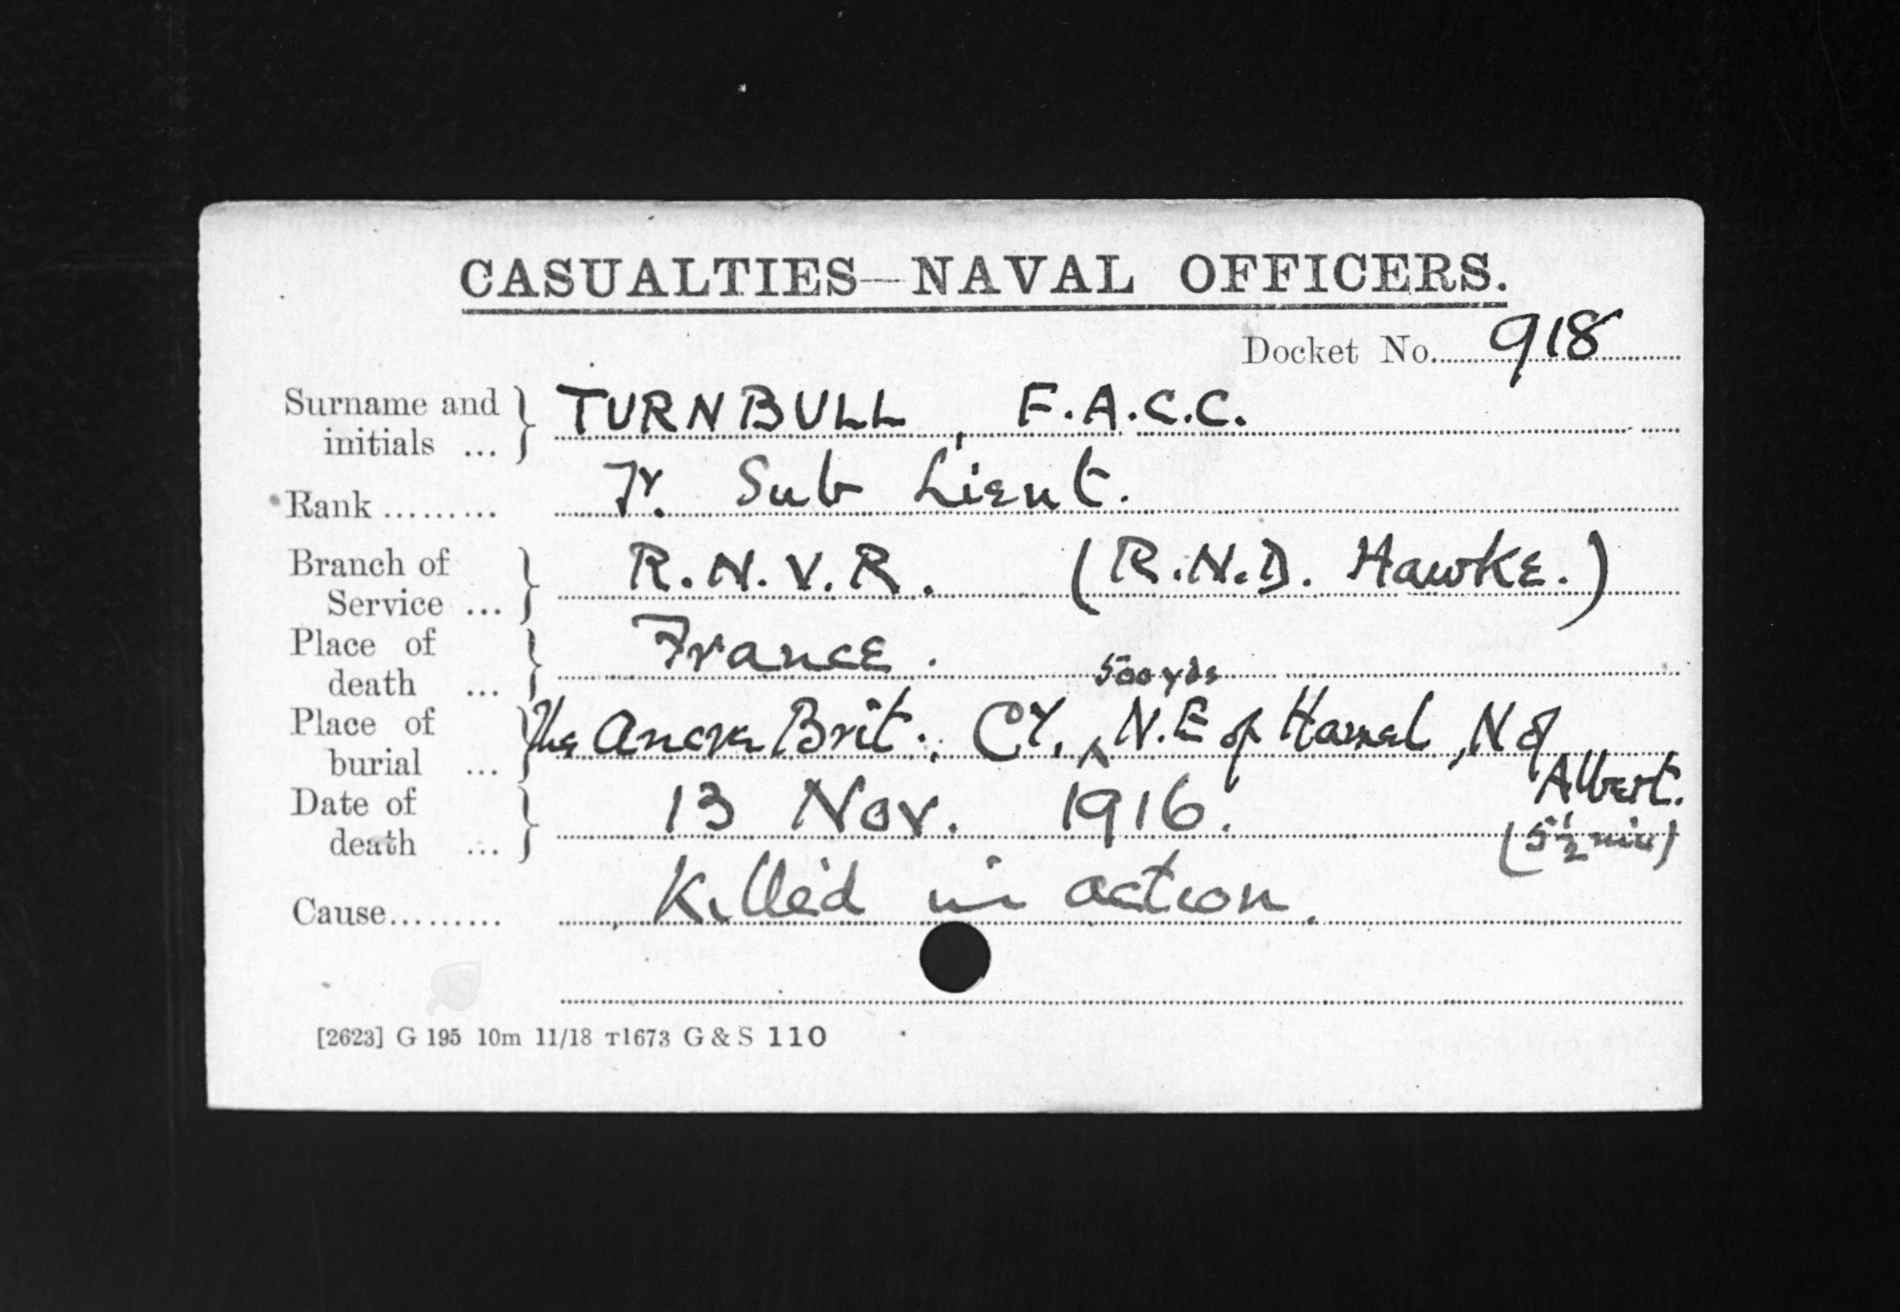 CASUALTIES—NAVAL OFFICERS.
Docket No. 918
Surname and initials ... TURNBULL, F.A.C.C.
Rank ......... Ty. Sub Lieut.
Branch of Service ... R.N.V.R. (R.N.D. Hawke.)
Place of death ... France.
500 yds
Place of burial ... The Ancre Brit. Cy. ^ N.E of Hamel, N of
Albert.
Date of death ... 13 Nov. 1916.
(5½ mils)
Cause......... Killed in action.
[2623] G 195 10m 11/18 T1673 G & S 110